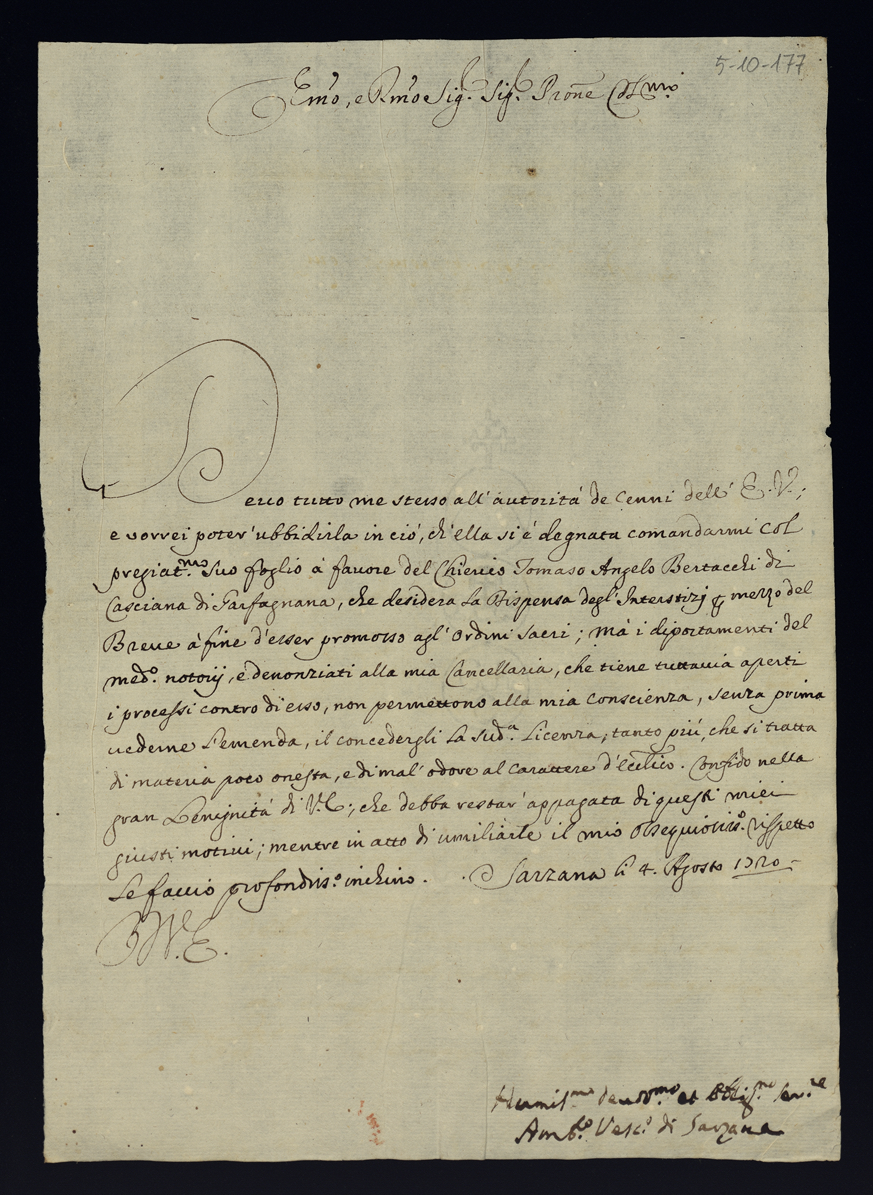 5-10-177
Em̃o, e Rm̃o Sig.r Sig.r Pron̄e Col.mo
Devo tutto me stesso all'autorità de Cenni dell' E. V.;
e vorrei poter' ubbidirla in ciò, ch'ella si è degnata comandarmi col
pregiat.mo Suo foglio à favore del Chierico Tomaso Angelo Bertacchi di
Casciana di Garfagnana, che desidera La Dispensa degl'Interstizij ꝑ mezzo del
Breve à fine d'esser promosso agl'Ordini Sacri; mà i diportamenti del
med.o notorij, e denonziati alla mia Cancellaria, che tiene tuttavia aperti
i processi contro di esso, non permettono alla mia Conscienza, senza prima
vederne L'emenda, il concedergli La sud.a Licenza; tanto più, che si tratta
di materia poco onesta, e di mal'odore al Carattere d'Eccl̃ico. Confido nella
gran Benignità di V. E., che debba restar' appagata di questi miei
giusti motivi; mentre in atto di umiliarle il mio Ossequiosis.o rispetto
Le faccio profondis.o inchino. Sarzana li 4. Agosto 1720
D. V. E.
Humil.mo Devot.mo et Obblig.mo Ser.re
Amb.o Vesc.o di Sarzana